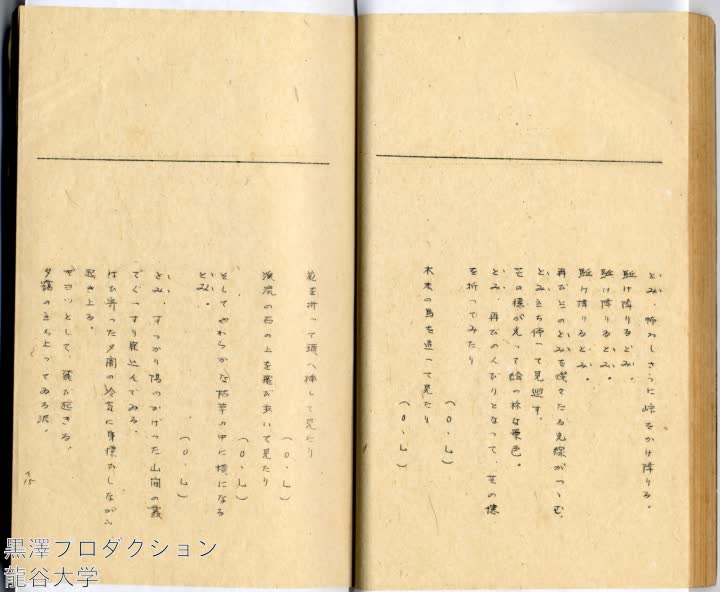 とみ、怖ろしさうに峠をかけ降りる。
駈け降りるとみ。
駈け降りるとみ。
駈け降りるとみ。
再びそのとみを燦々たる光線がつゝむ。
とみ立ち停って見廻す。
芒の穂が光って絵の様な景色。
とみ、再びのんびりとなって、芒の穂
を折ってみたり
（O・L）
木末の鳥を追って見たり
（O・L）
花を折って頭へ挿して見たり
（O・L）
渓流の石の上を飛び歩いて見たり
（O・L）
そしてやわらかな枯草の中に横になる
とみ。
（O・L）
とみ、すっかり陽のかげった山間の叢
でぐっすり寝込んでゐる。
はひ寄った夕闇の冷気に身慄ひしながら
起き上る。
ギヨツとして、飛び起きる。
夕靄の立ち上ってゐる沢。
黒澤プロダクション
龍谷大学